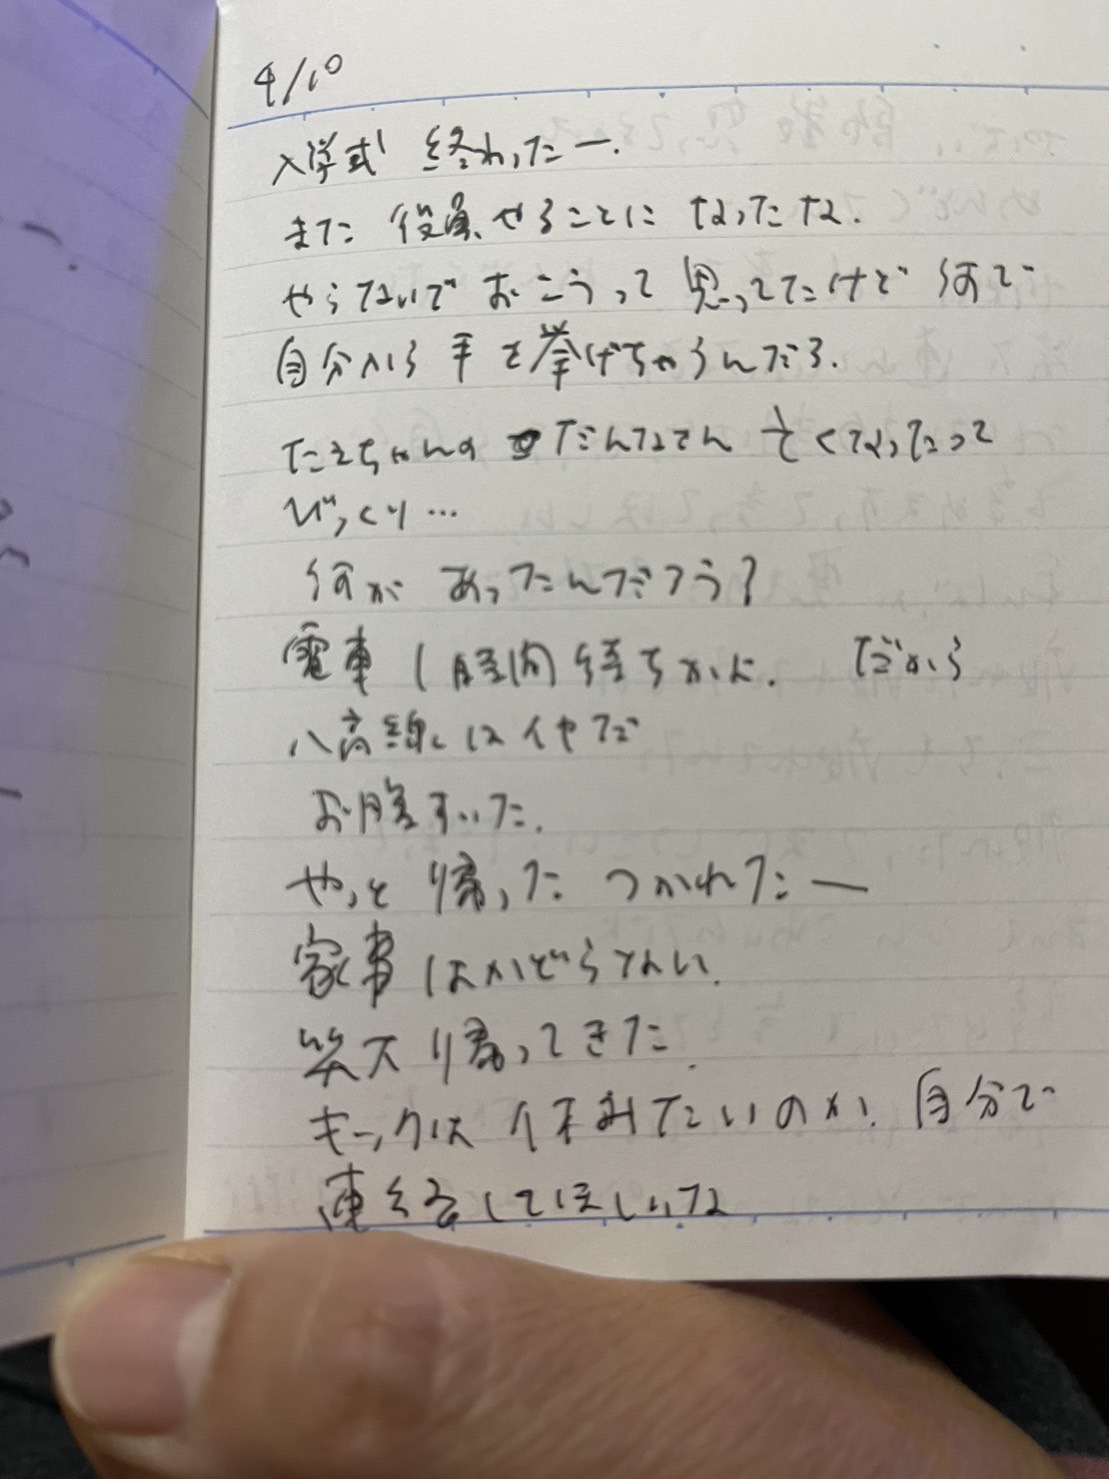 4/10
入学式 終わったー.
また 役員 やることに なったな.
やらないで おこうって 思ってたけど 何で
自分から 手を挙げちゃうんだろ.
たえちゃんの だんなさん 亡くなったって
びっくり…
何が あったんだろう?
電車 1時間待ちかよ. だから
八高線はイヤだ
お腹すいた.
やっと 帰った つかれたー
家事 はかどらない.
帰ってきた.
キックは 休みたいのか. 自分で
連絡してほしいな